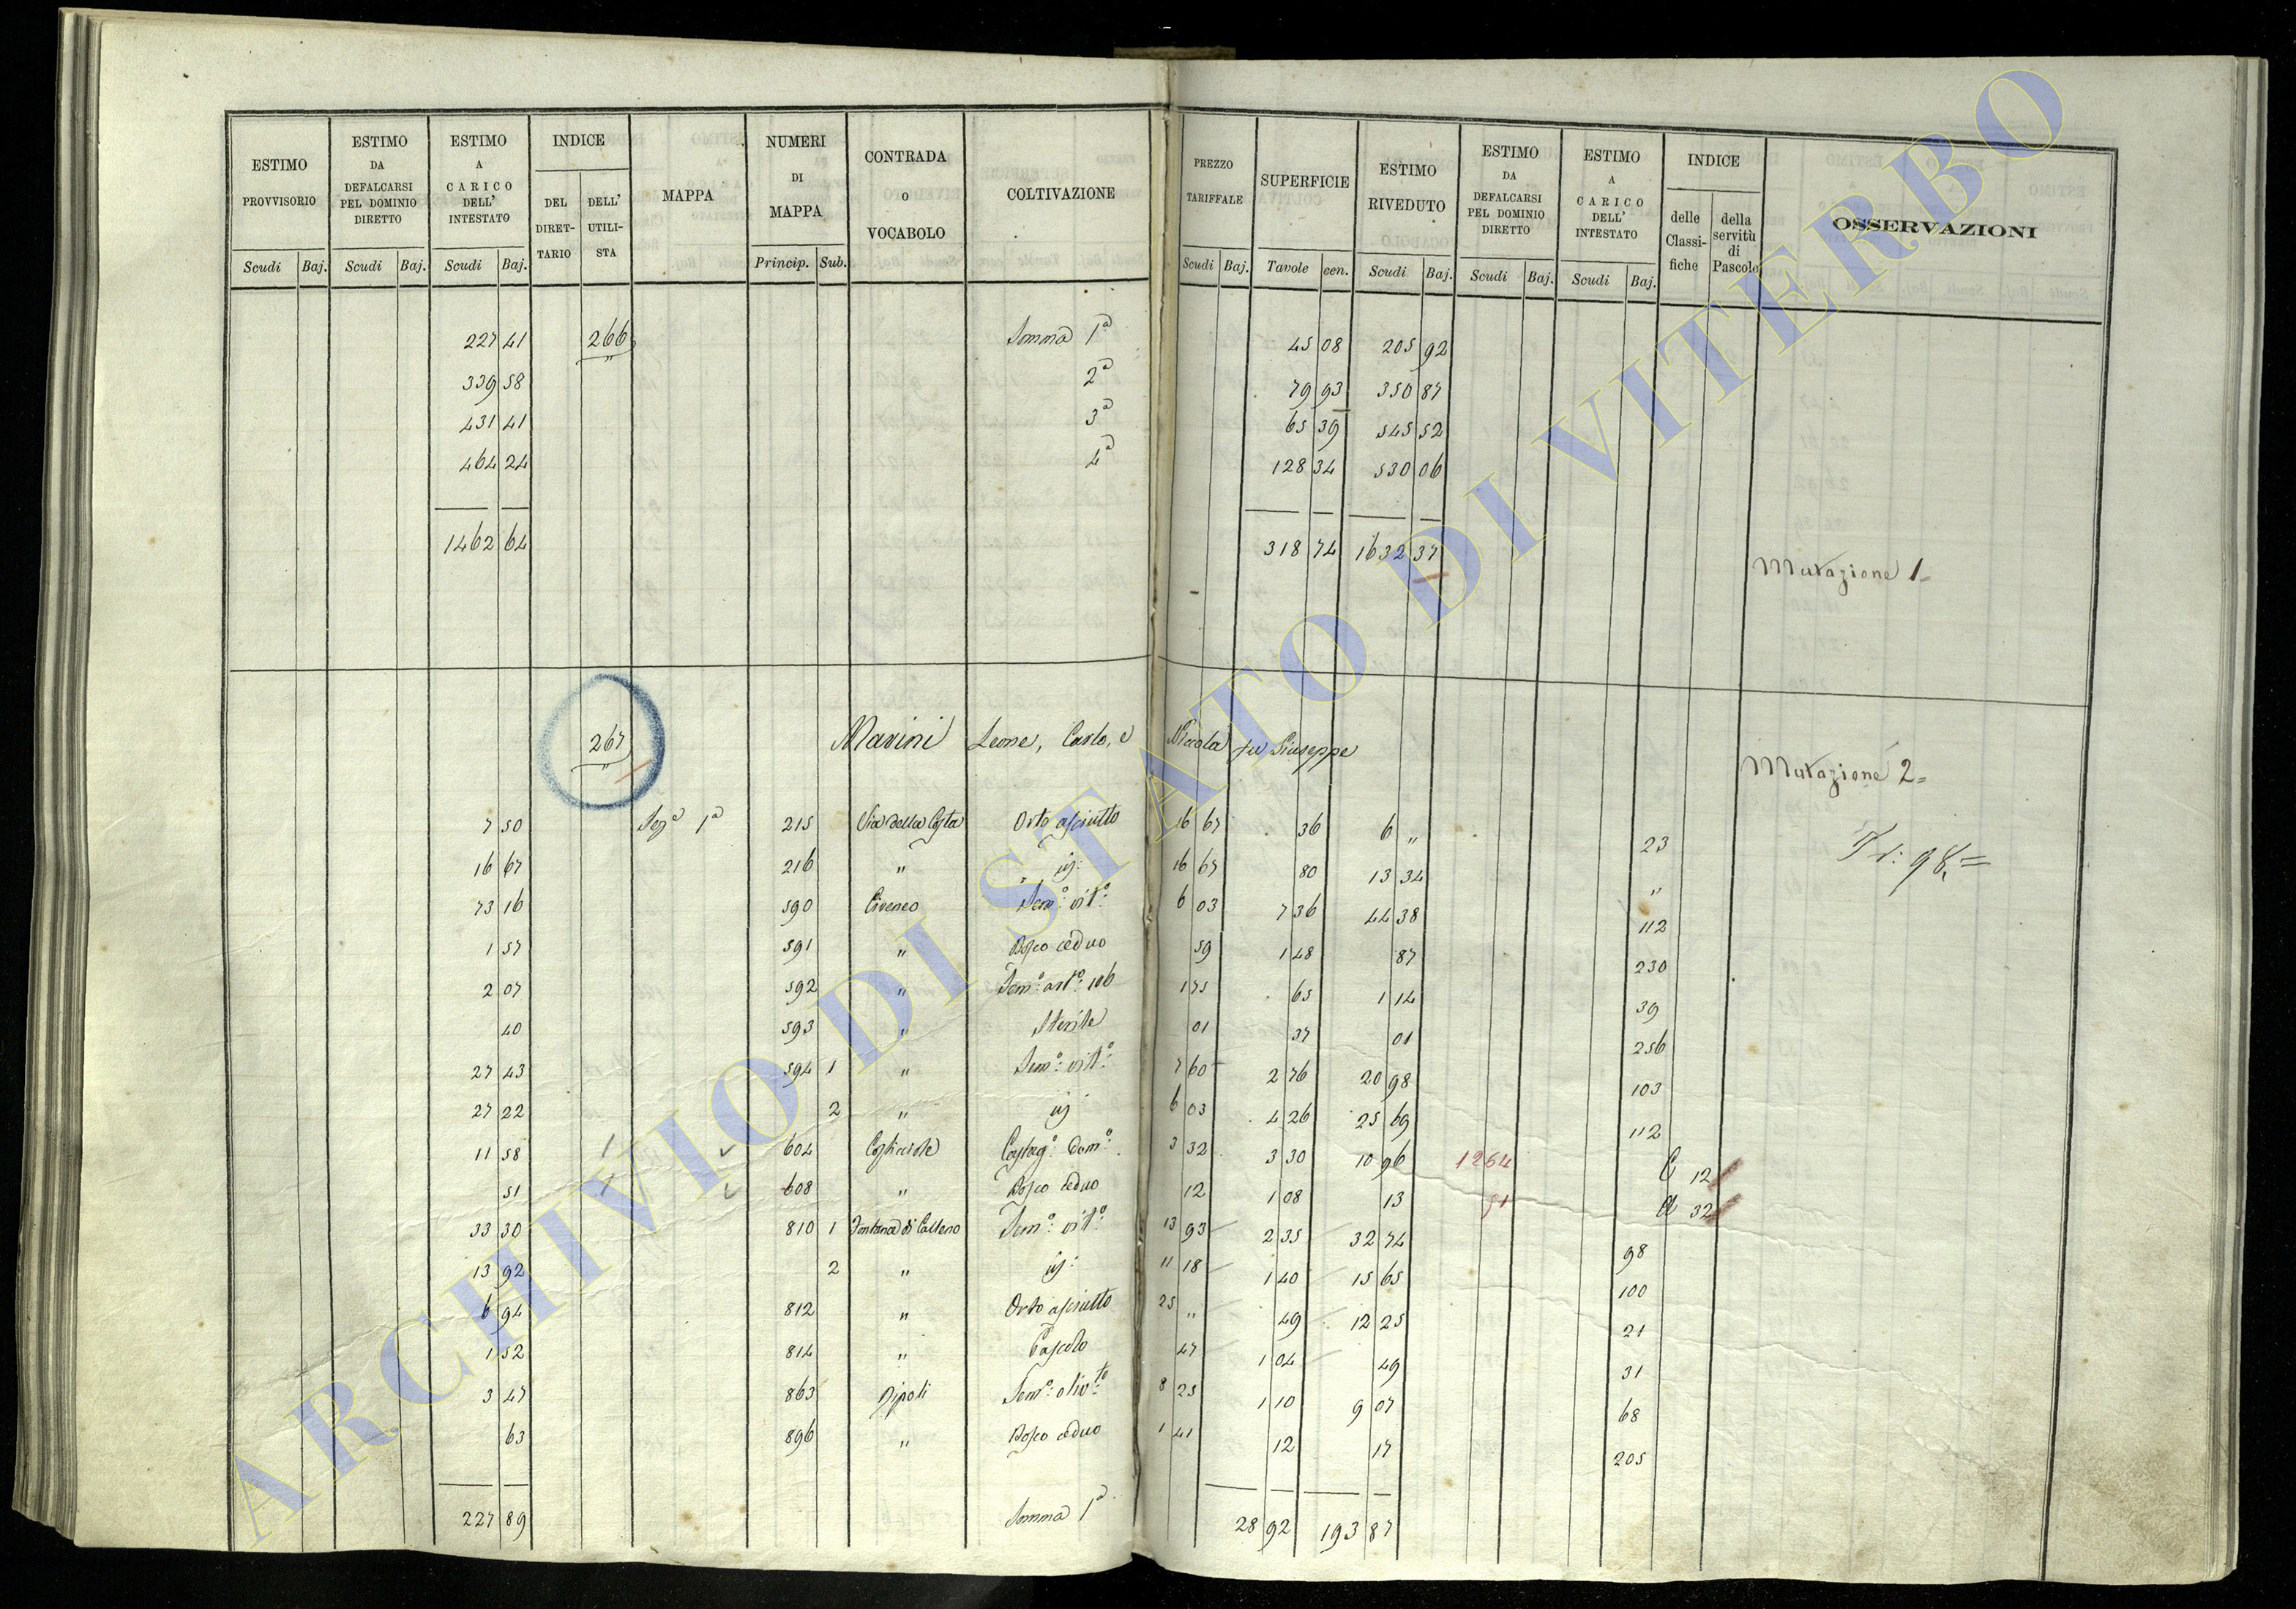 ESTIMO PROVVISORIO | ESTIMO DA DEFALCARSI PEL DOMINIO DIRETTO | ESTIMO A CARICO DELL' INTESTATO | INDICE DEL DIRET-TARIO | DELL' UTILI-STA | MAPPA | NUMERI DI MAPPA | CONTRADA O VOCABOLO | COLTIVAZIONE | PREZZO TARIFFALE | SUPERFICIE | ESTIMO RIVEDUTO | ESTIMO DA DEFALCARSI PEL DOMINIO DIRETTO | ESTIMO A CARICO DELL' INTESTATO | INDICE delle Classi-fiche | della servitù di Pascolo | OSSERVAZIONI
Scudi | Baj. | Scudi | Baj. | Scudi | Baj. | Princip. | Sub. | Scudi | Baj. | Tavole | cen. | Scudi | Baj. | Scudi | Baj. | Scudi | Baj.
227 41 | 266 | Somma 1ª | 45 08 | 205 92
339 58 | 2ª | 79 93 | 350 87
431 41 | 3ª | 65 39 | 545 52
464 24 | 4ª | 128 34 | 530 06
1462 64 | 318 74 | 1632 37
Mutazione 1=
267 | Marini Leone, Carlo, e Niccola fu Giuseppe
Mutazione 2=
7 50 | Sezª 1ª | 215 | Via della Costa | Orto asciutto | 16 67 | 36 | 6 " | 23
16 67 | 216 | " | id: | 16 67 | 80 | 13 34 | " | 98=
73 16 | 590 | Semº: vitº: | 6 03 | 7 36 | 44 38 | 112
1 57 | 591 | " | Bosco ceduo | 59 | 1 48 | 87 | 230
2 07 | 592 | " | Semº: artº: 106 | 1 75 | 65 | 1 14 | 39
40 | 593 | " | Sterile | 01 | 37 | 01 | 256
27 43 | 594 1 | " | Semº: vitº: | 7 60 | 2 76 | 20 98 | 103
27 22 | 2 | " | id: | 6 03 | 4 26 | 25 69 | 112
11 58 | 604 | Castagº: domº: | 3 32 | 3 30 | 10 96 | 12 64 | C 12
51 | 608 | " | Bosco ceduo | 12 | 1 08 | 13 | 51 | a 32
33 30 | 810 1 | Fontana di Calleno | Semº: vitº: | 13 93 | 2 35 | 32 74 | 98
13 92 | 2 | " | id: | 11 18 | 1 40 | 15 65 | 100
6 94 | 812 | " | Orto asciutto | 25 " | 49 | 12 25 | 21
1 52 | 814 | " | Pascolo | 47 | 1 04 | 49 | 31
3 47 | 863 | Ripoli | Semº: olivto: | 8 25 | 1 10 | 9 07 | 68
63 | 896 | " | Bosco ceduo | 1 41 | 12 | 17 | 205
227 89 | Somma 1ª | 28 92 | 193 87
ARCHIVIO DI STATO DI VITERBO